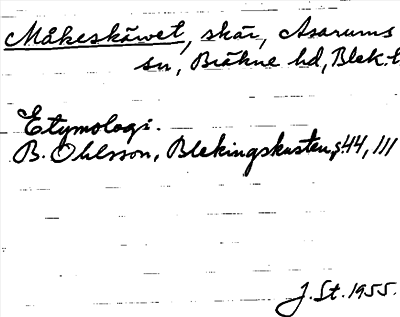 Måkeskärvet, skär, Asarums
sn, Bräkne hd, Blek. l
Etymologi.
B. Ohlsson, Blekingskusten, s 44, 111
J. St. 1955.